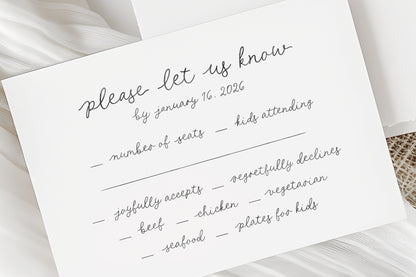 please let us know
by january 16, 2026
_ number of seats _ kids attending
_ joyfully accepts _ regretfully declines
_ beef _ chicken _ vegetarian
_ seafood _ plates for kids